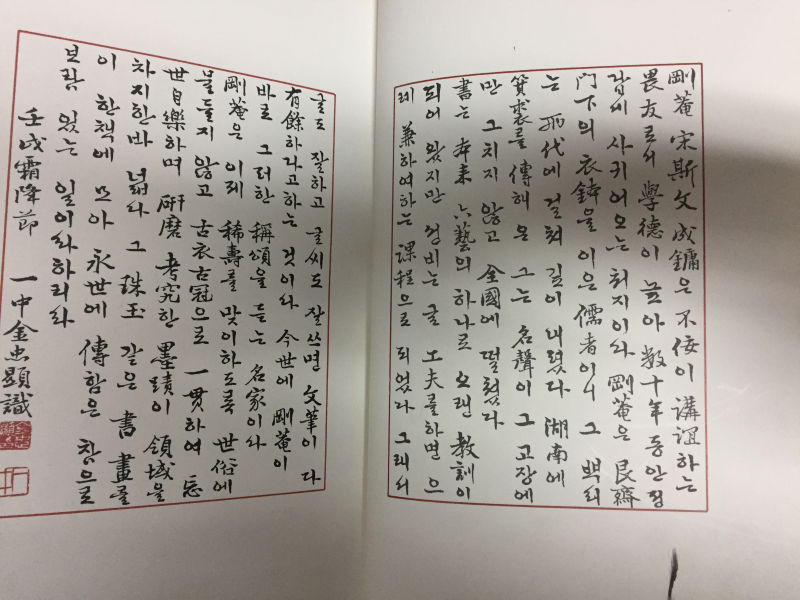 剛菴宋斯文成鏞은 不佞이 講誼하는
畏友로서 學德이 높아 数十年 동안 정
답께 사귀어오는 처지이라 剛菴은 艮齋
門下의 衣鉢을 이은 儒者이니 그 뿌리
는 兩代에 걸쳐 깊이 내렸다 湖南에
箕裘를 傳해온 그는 名聲이 그 고장에
만 그치지 않고 全國에 떨쳤다
書는 本來 六藝의 하나로 오랜 敎訓이
되어 왔지만 선비는 글 工夫를 하면 으
레 兼하여하는 課程으로 되었다 그래서
글도 잘하고 글씨도 잘 쓰면 文筆이 다
有餘하다고하는 것이라 今世에 剛菴이
바로 그러한 稱頌을 듣는 名家이라
剛菴은 이제 稀壽를 맞이하도록 世俗에
물들지 않고 古衣古冠으로 一貫하여 忘
世自樂하며 硏磨 考究한 墨蹟이 領域을
차지한바 넓다 그 珠玉 같은 書畫를
이 한책에 모아 永世에 傳함은 참으로
보람 있는 일이라하리라
壬戌霜降節 一中金忠顯識